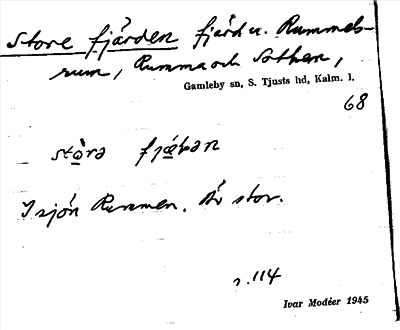 Store fjärden fjärd u. Rummels-
rum, Rumma och Sothem,
Gamleby sn, S. Tjusts hd, Kalm. l.
68
I sjön Rummen. Är stor.
s. 114
Ivar Modéer 1945